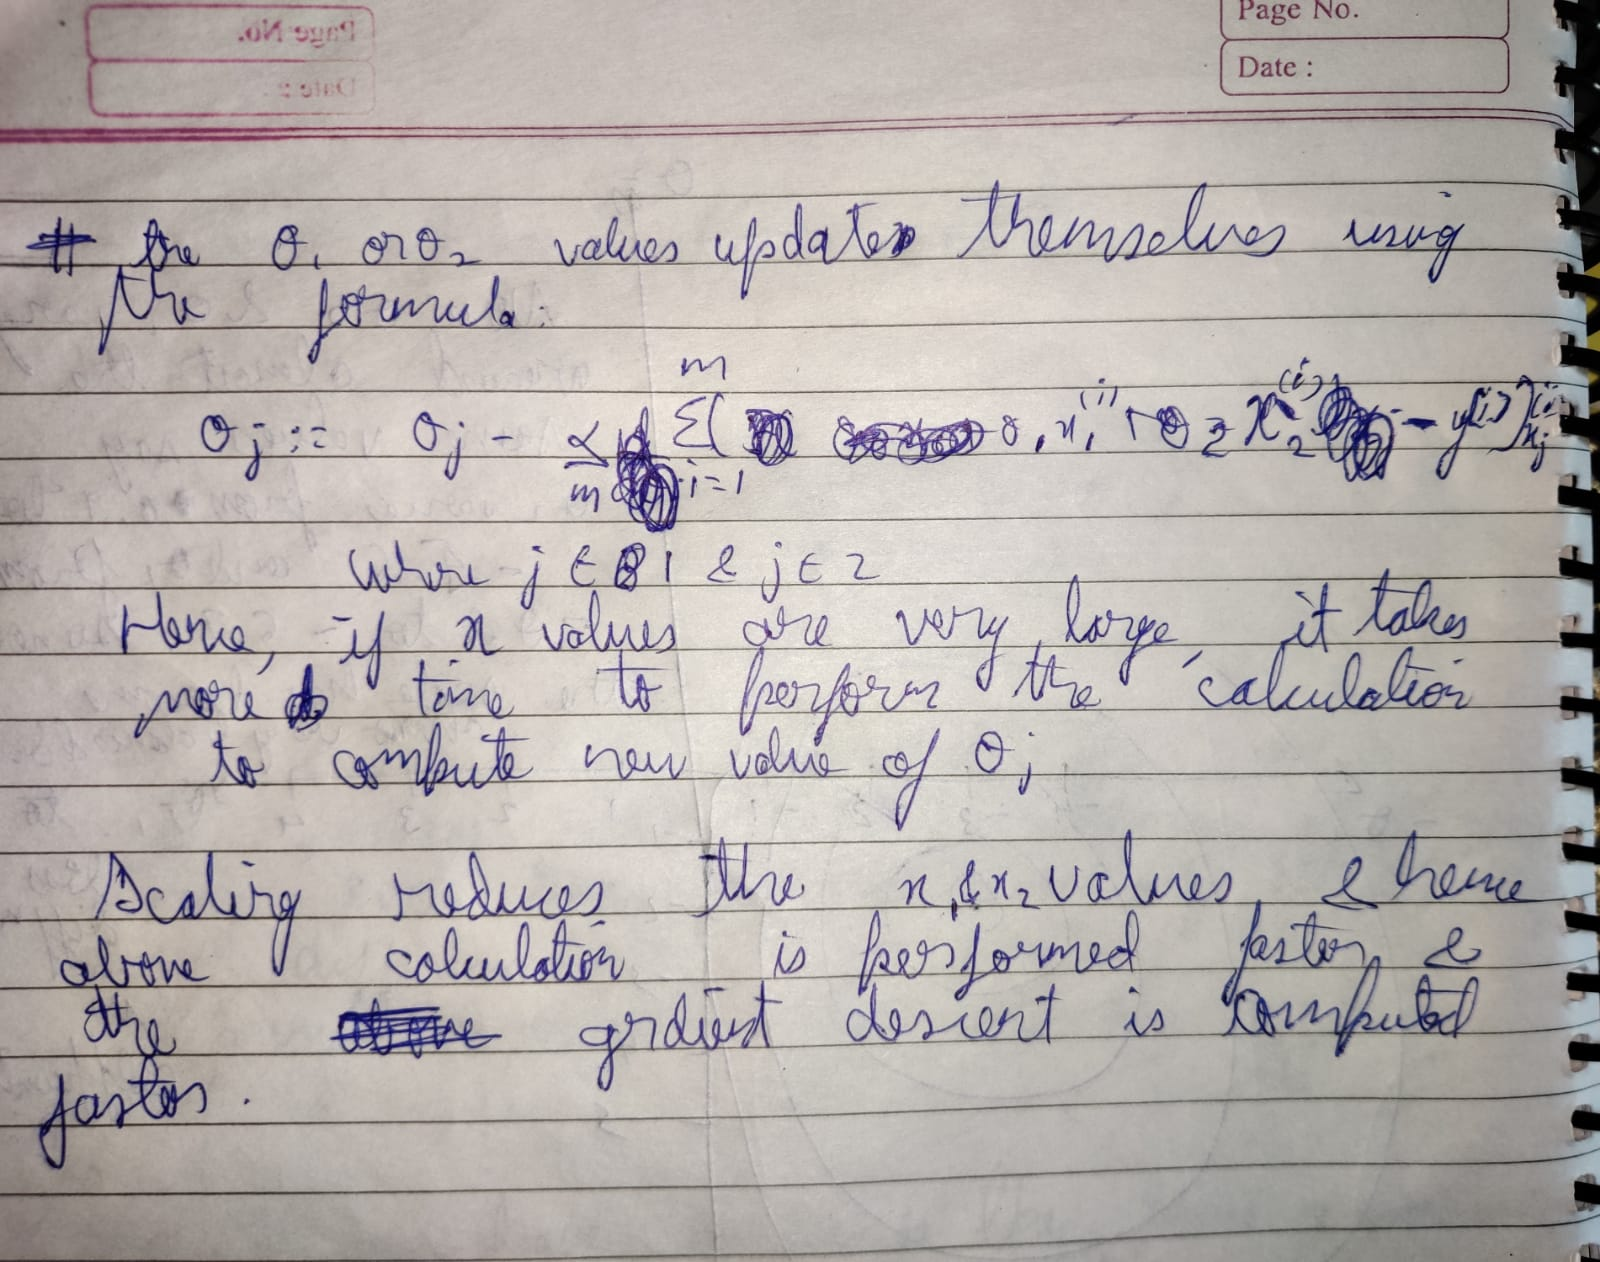 Page No.
Date :
# the θ₁ or θ₂ values updates themselves using
the formula:
θj := θj - α/m Σ(i=1 to m) (θ₁x₁⁽ⁱ⁾ + θ₂x₂⁽ⁱ⁾ - y⁽ⁱ⁾)xj⁽ⁱ⁾
where j ∈ 1 & j ∈ 2
Hence, if x values are very large, it takes
more time to perform the calculation
to compute new value of θj
Scaling reduces the x₁ & x₂ values, & hence
above calculation is performed faster &
the grdient descent is computed
faster.